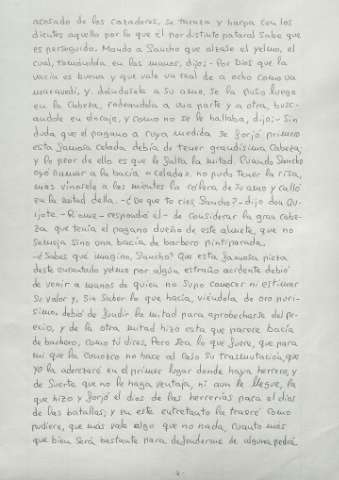 acosado de los cazadores, se taraza y harpa con los
dientes aquello por lo que él por distinto natural sabe que
es perseguido. Mandó a Sancho que alzase el yelmo, el
cual, tomándola en las manos, dijo: - Por Dios que la
vacía es buena y que vale un real de a ocho como un
maravedí, y, dándosela a su amo, se la puso luego
en la cabeza, rodeándola a una parte y a otra, busc-
ándole en encaje, y como no se le hallaba, dijo: - Sin
duda que el pagano a cuya medida se forjó primero
esta famosa celada debía de tener grandísima cabeza;
y lo peor de ello es que le falta la mitad. Cuando Sancho
oyó llamar a la bacía «celada» no pudo tener la risa,
mas vínosele a las mientes la cólera de su amo y calló
en la mitad della. - ¿De que te ríes, Sancho? - dijo don Qu-
ijote. - Ríome - respondió él - de considerar la gran cabe-
za que tenía el pagano dueño de este almete, que no
semeja sino una bacía de barbero pintiparada.
- ¿Sabes qué imagino, Sancho? Que esta famosa pieza
deste encantado yelmo por algún estraño acidente debió
de venir a manos de quien no supo conocer ni estimar
su valor y, sin saber lo que hacía, viéndola de oro purí-
simo, debió de fundir la mitad para aprobecharse del pr-
ecio, y de la otra mitad hizo esta que parece bacía
de barbero, como tú dices. Pero sea lo que fuere, que para
mí que la conozco no hace al caso su trasmutación, que
yo la aderezaré en el primer lugar donde haya herrero, y
de suerte que no le haga ventaja, ni aun le llegue, la
que hizo y forjó el dios de las herrerías para el dios
de las batallas; y en este entretanto la traeré como
pudiere, que más vale algo que no nada, cuanto más
que bien será bastante para defenderme de alguna pedra